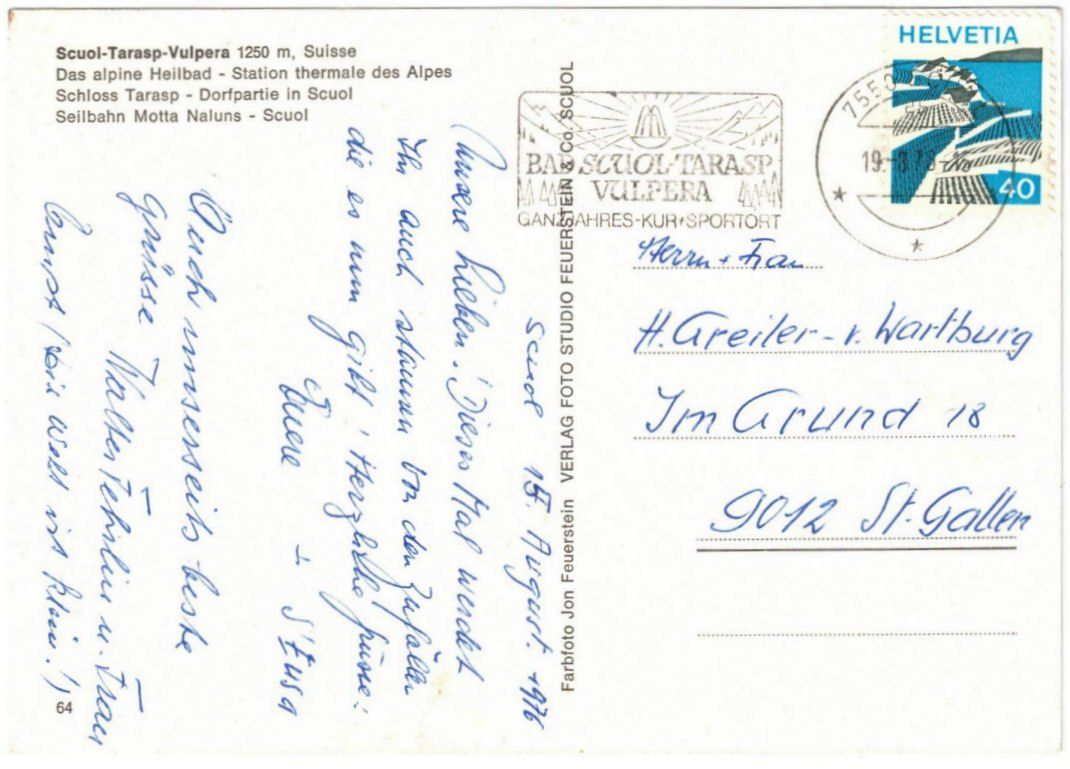 Scuol-Tarasp-Vulpera 1250 m, Suisse
Das alpine Heilbad - Station thermale des Alpes
Schloss Tarasp - Dorfpartie in Scuol
Seilbahn Motta Naluns - Scuol
Scuol 15. August 1976
Unsere Lieben! Dieses Mal werdet
Ihr auch staunen von den Zufällen
die es nun gibt! Herzliche Grüsse:
Euere
Euch unserseits beste
Grüsse Walter Fehrlin u. Frau
(die Welt ist klein!)
64
Farbfoto Jon Feuerstein VERLAG FOTO STUDIO FEUERSTEIN & Co. SCUOL
BAD SCUOL-TARASP
VULPERA
GANZJAHRES-KUR+SPORTORT
7550
HELVETIA
40
Herrn + Frau
H. Greiler - v. Wartburg
Im Grund 18
9012 St. Gallen